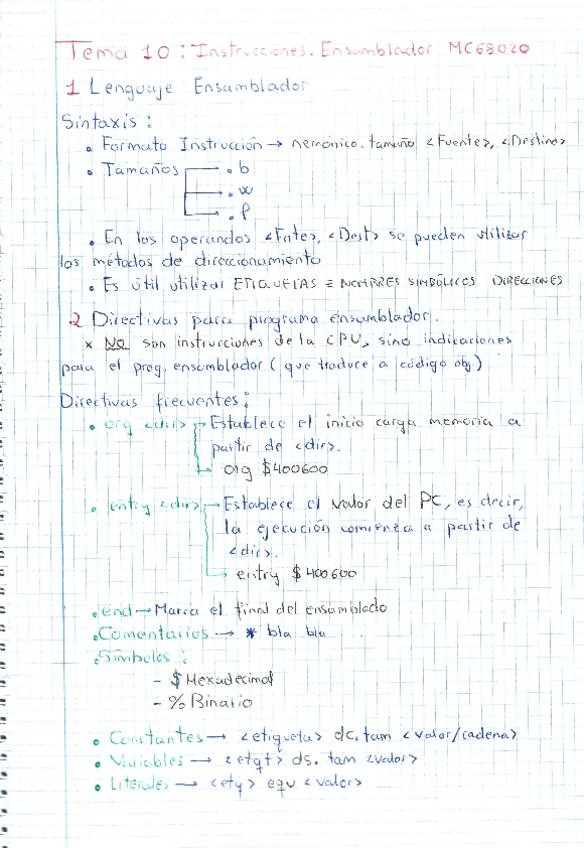 Tema 10: Instrucciones. Ensamblador MC68020
1 Lenguaje Ensamblador
Sintaxis:
• Formato Instrucción → nemónico.tamaño <Fuente>, <Destino>
• Tamaños → .b
→ .w
→ .l
• En los operandos <Fnte>, <Dest> se pueden utilizar
los métodos de direccionamiento
• Es útil utilizar ETIQUETAS ≡ NOMBRES SIMBÓLICOS DIRECCIONES
2 Directivas para programa ensamblador.
* NO son instrucciones de la CPU, sino indicaciones
para el prog. ensamblador (que traduce a código obj.)
Directivas frecuentes:
• org <dir> → Establece el inicio carga memoria a
partir de <dir>.
→ org $400600
• entry <dir> → Establece el valor del PC, es decir,
la ejecución comienza a partir de
<dir>.
→ entry $400600
• end → Marca el final del ensamblado
• Comentarios → * bla bla
• Símbolos:
- $ Hexadecimal
- % Binario
• Constantes → <etiqueta> dc.tam <valor/cadena>
• Variables → <etqt> ds.tam <valor>
• Literales → <etq> equ <valor>